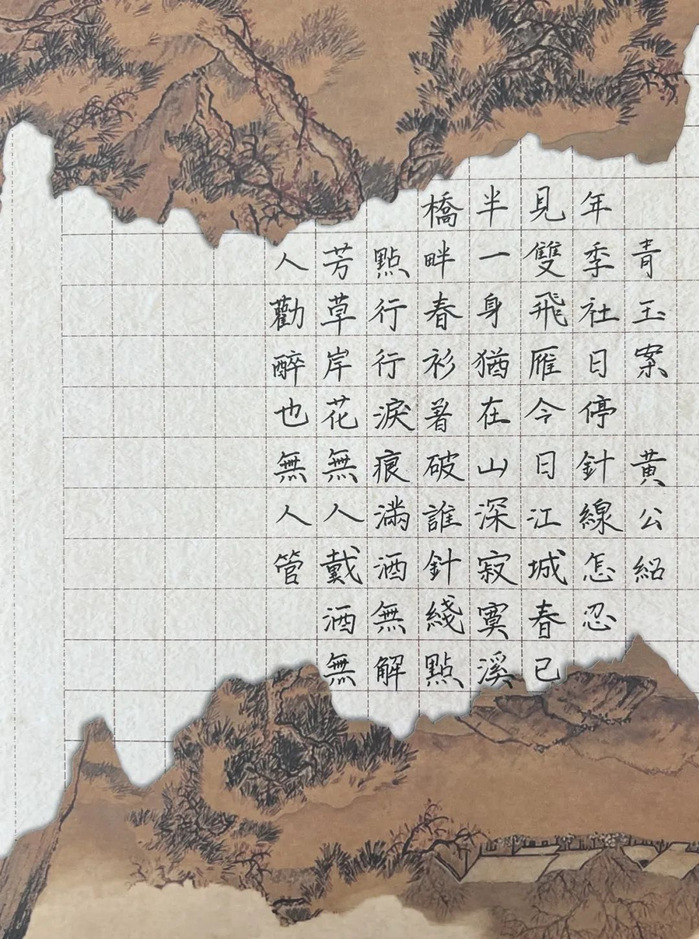 青玉案 黃公紹
年季社日停針線怎忍
見雙飛雁今日江城春已
半一身猶在山深寂寞溪
橋畔春衫著破誰針綫點
點行行淚痕滿酒無解
芳草岸花無人戴酒無
人勸醉也無人管